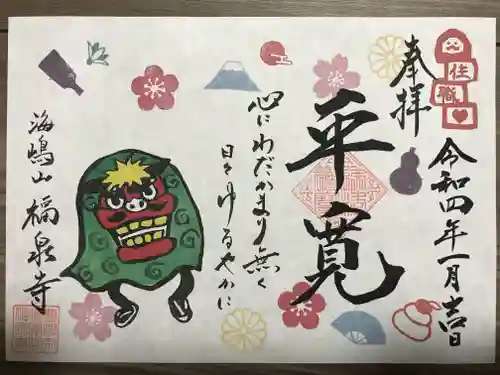 奉拝
住職
令和四年一月吉日
平寛
心にわだかまり無く
日々ゆるやかに
海嶋山 福泉寺